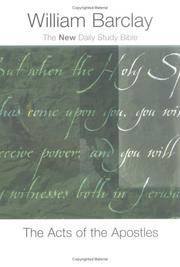 William Barclay
The New Daily Study Bible
But when the Holy Sp
has come upon you, you will
receive power; and you will
witnesses both in Jerusa
The Acts of the Apostles